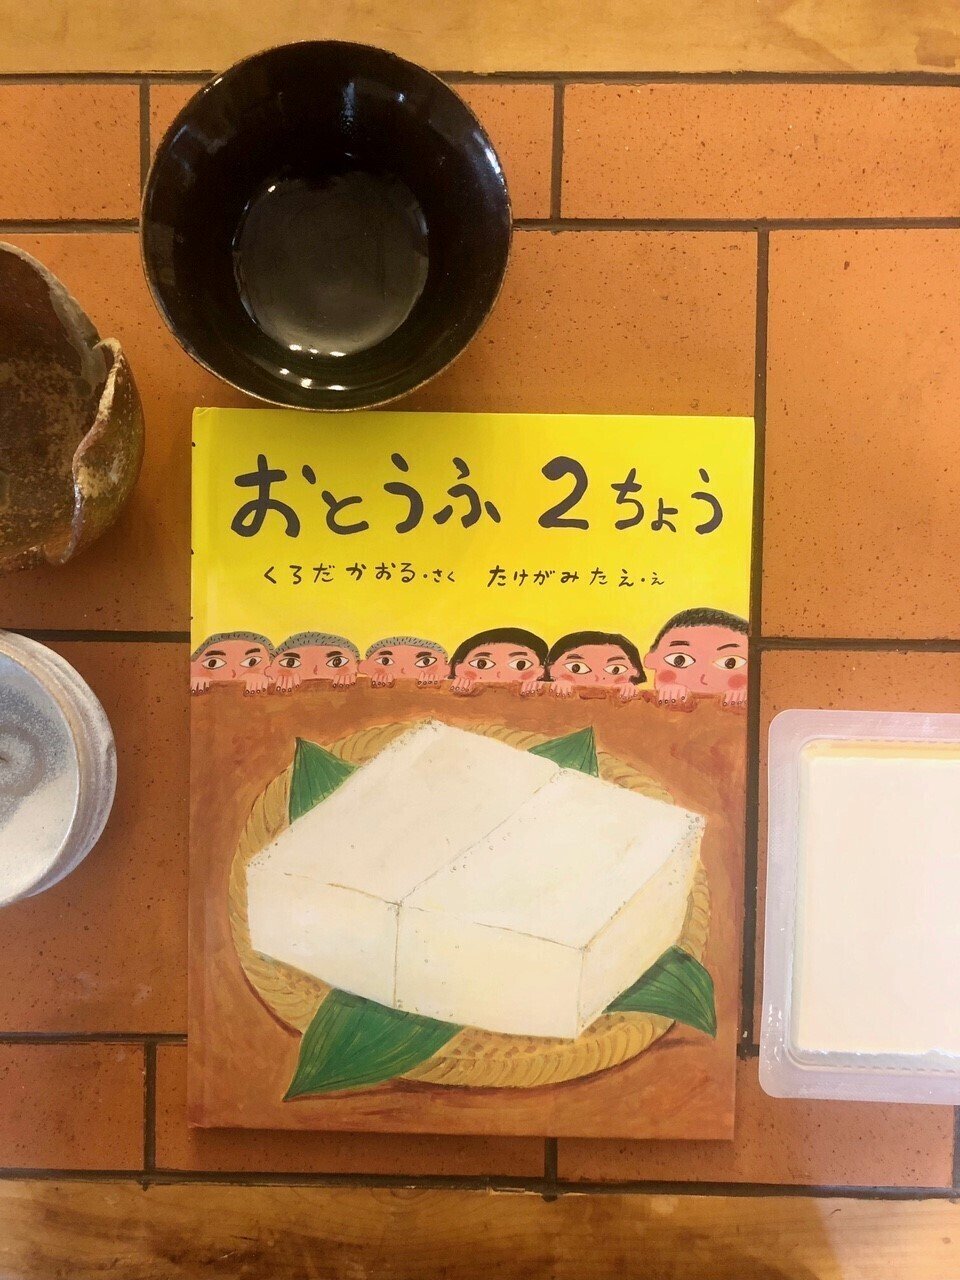 おとうふ 2ちょう
くろだ かおる・さく たけがみ たえ・え